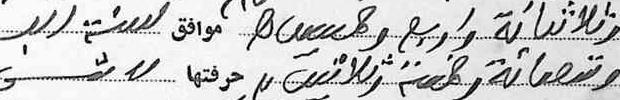 وثلاثمائة واربع وخمسون موافق لسنة الف
وتسعمائة وخمسة وثلاثين م حرفتها